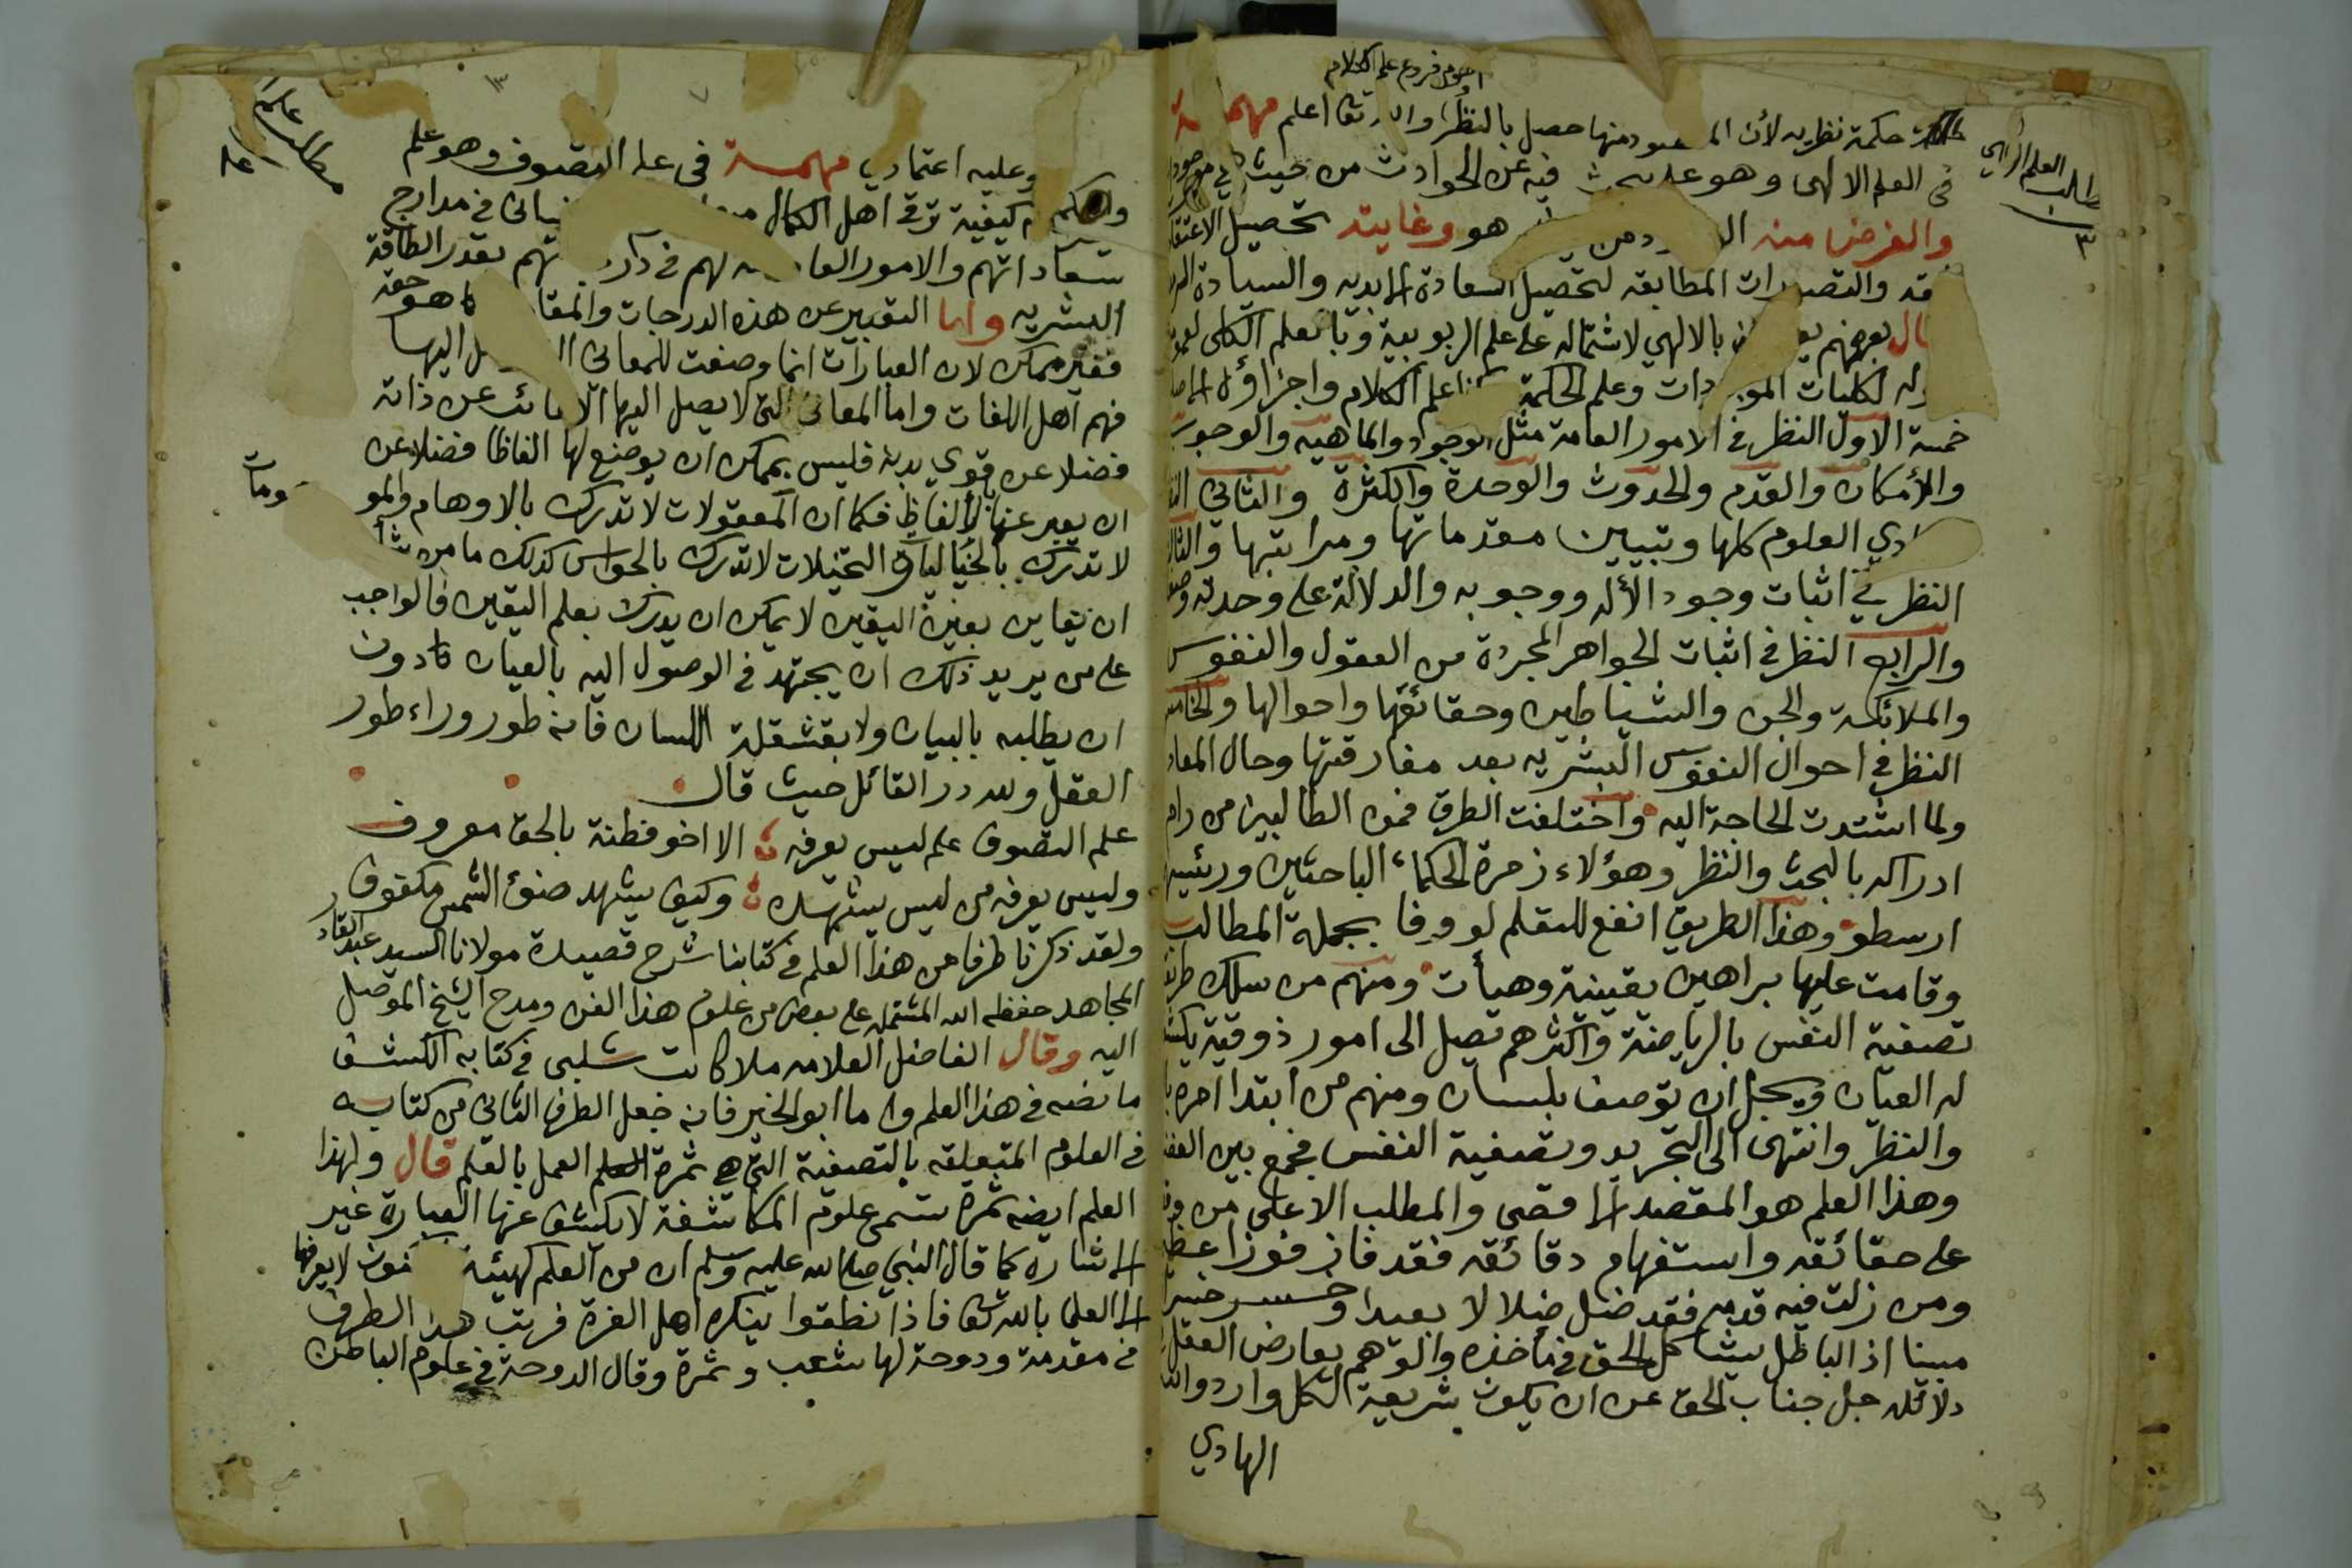 اصول فروع علم الكلام
حكمة نظرية لأن المقصود منها حصل بالنظر والله تعا اعلم مهمة
في العلم الالهي وهو علم يبحث فيه عن الحوادث من حيث هي موجودة
والغرض منه هو وغايته تحصيل الاعتقا
والتصورات المطابقه لتحصيل السعادة الابديه والسيادة
قال بعضهم بالالهي لاشتماله على علم الربوبية وبالعلم الكلى لعموم
لكليات الموجودات وعلم الحكمة علم الكلام واجزاؤه
خمسة الاول النظر في الامور العامة مثل الوجود والماهيه والوجوب
والأمكان والقدم والحدوث والوحدة والكثرة والثاني
العلوم كلها وتبيين مقدماتها ومراتبها والثالث
النظر في اثبات وجود الأله ووجوبه والدلالة على وحدته
والرابع النظر في اثبات الجواهر المجردة من العقول والنفوس
والملائكة والجن والشياطين وحقائقها واحوالها والخامس
النظر في احوال النفوس البشريه بعد مفارقتها وحال المعاد
ولما اشتدت الحاجة اليه واختلفت الطرق فمن الطالبين من رام
ادراكه بالبحث والنظر وهؤلاء زمرة الحكماء الباحثين ورئيسهم
ارسطو وهذا الطريق انفع للتعلم لو وفا بجملة المطالب
وقامت عليها براهين يقينية وهيأت ومنهم من سلك طريق
تصفية النفس بالرياضة واكثرهم تصل الى امور ذوقية يكشفها
له العيان ويجل ان توصف بلسان ومنهم من ابتدا امره
والنظر وانتهى الى التجريد وتصفية النفس فجمع بين
وهذا العلم هو المقصد الاقصى والمطلب الاعلى من
على حقائقه واستفهام دقائقه فقد فاز فوزا عظيما
ومن زلت فيه قدمه فقد ضل ضلالا بعيدا وخسر خسرا
مبينا اذ الباطل يشاكل الحق في مأخذه والوهم يعارض العقل
دلائله جل جناب الحق عن ان يكون شريعة لكل وارد
الهادي
وعليه اعتمادي مهمة في علم التصوف وهو علم
كيفية ترقي اهل الكمال في مدارج
سعاداتهم والامور العارضة لهم في درجاتهم بقدر الطاقة
البشريه واما التعبير عن هذه الدرجات والمقامات كما هو حقه
فغير ممكن لان العبارات انما وضعت للمعاني اليها
فهم اهل اللغات واما المعاني التي لا يصل اليها الا غائب عن ذاته
فضلا عن قوي بدنه فليس بممكن ان يوضع لها الفاظا فضلا عن
ان يعبر عنها بالالفاظ فكما ان المعقولات لا تدرك بالاوهام والموهومات
لا تدرك بالخياليات والتخيلات لا تدرك بالحواس كذلك ما من شأنه
ان يعاين بعين اليقين لا يمكن ان يدرك بعلم اليقين فالواجب
على من يريد ذلك ان يجتهد في الوصول اليه بالعيان دون
ان يطلبه بالبيان ولا بقشقلة اللسان فانه طور وراء طور
العقل ولله در القائل حيث قال
علم التصوف علم ليس يعرفه الا اخو فطنة بالحق معروف
وليس يعرفه من ليس يشهده وكيف يشهد ضوء الشمس مكفوف
ولقد ذكرنا طرفا من هذا العلم في كتابنا شرح قصيدة مولانا السيد عبد القادر
المجاهد حفظه الله المشتمل على بعض من علوم هذا الفن ومدح الشيخ الموصل
اليه وقال الفاضل العلامه ملا كاتب شلبي في كتابه الكشف
ما نصه في هذا العلم واما ابو الخير فانه جعل الطرف الثاني من كتابه
في العلوم المتعلقه بالتصفية التي هي ثمرة العمل بالعلم قال ولهذا
العلم ايضه ثمرة تسمى علوم المكاشفة لا يكشف عنها العبارة غير
الاشارة كما قال النبي صلى الله عليه وسلم ان من العلم كهيئة المكنون لا يعرفها
الا العلما بالله تعا فاذا نطقوا ينكره اهل الغرة فرتب هذا الطرف
في مقدمة ودوحة لها شعب وثمرة وقال الدوحة في علوم الباطن